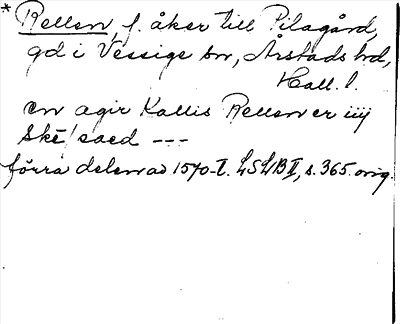 * Rellen, f. åker till Pilagård,
gd i Vessige sn, Årstads hd,
Hall. l.
en agir Kallis Rellen er iiij
Ske/ saed ---
förra delen av 1570-t. LSLB II, s. 365. orig.